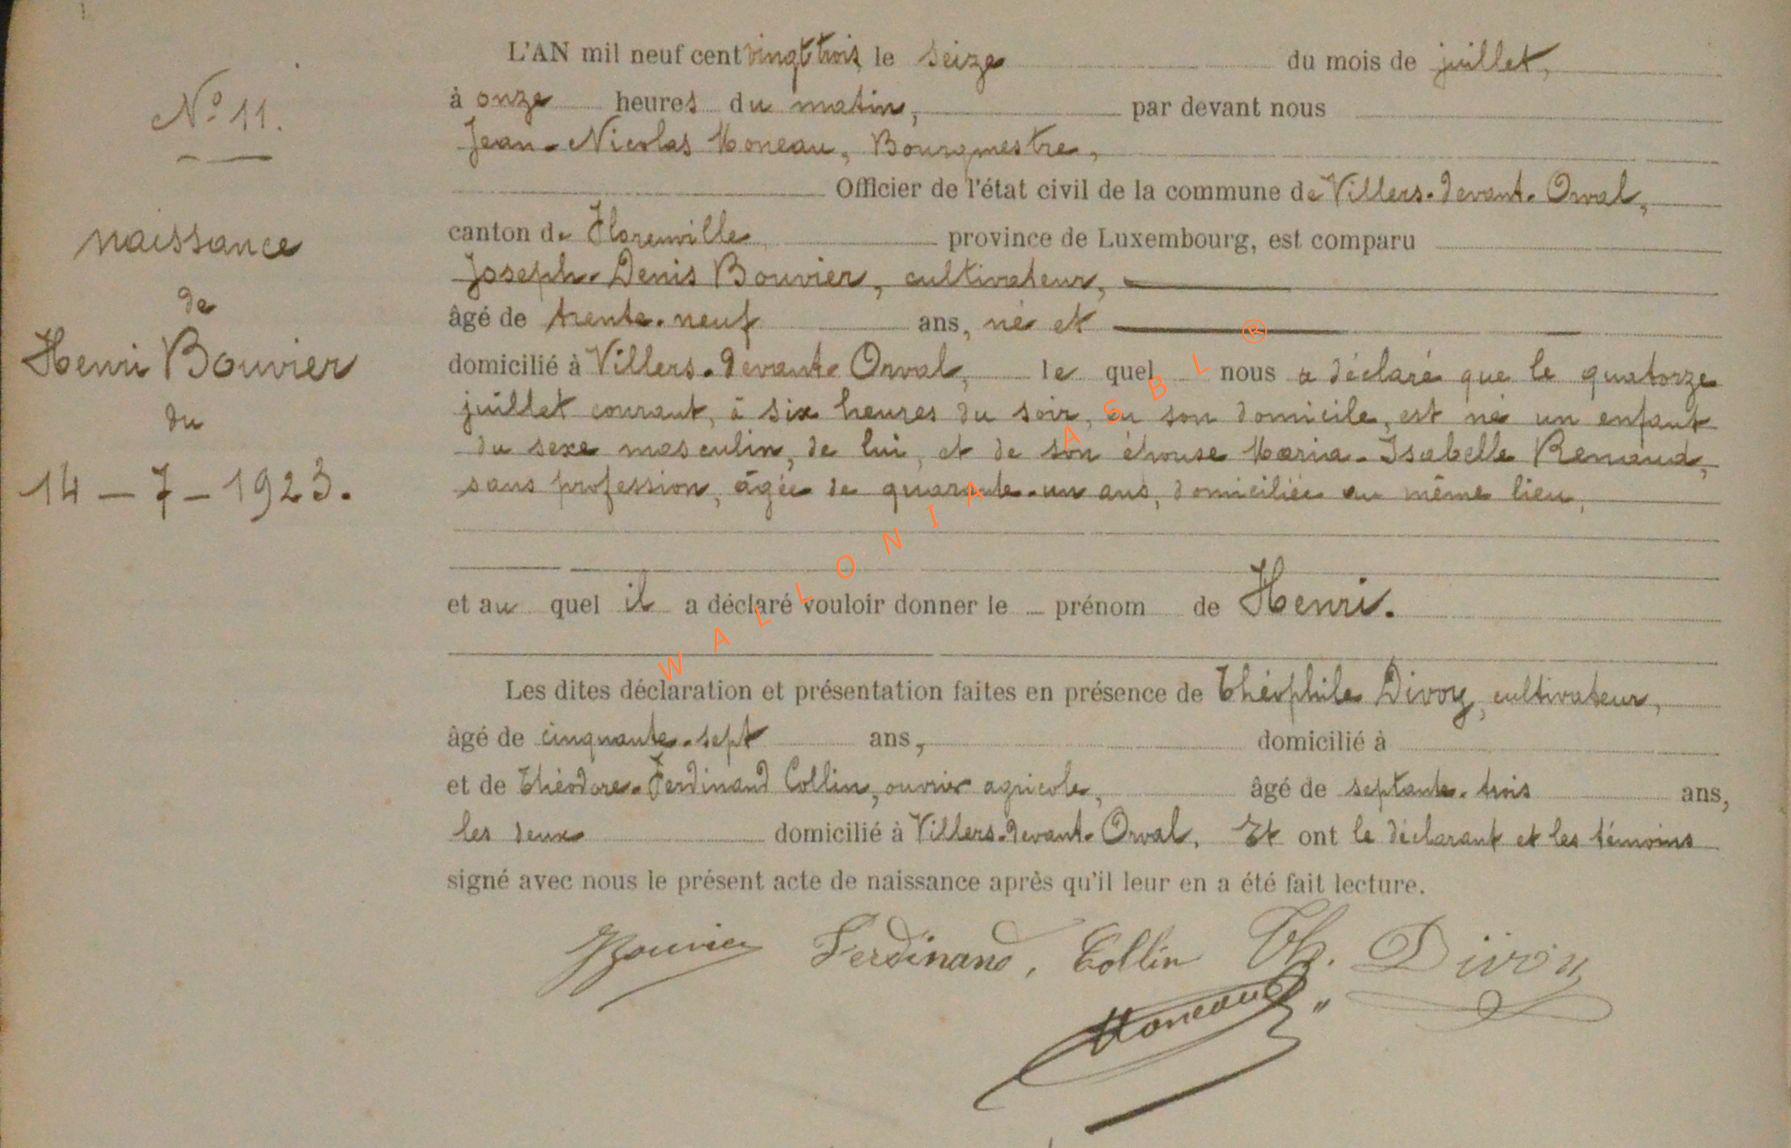 N° 11.
naissance
de
Henri Bouvier
du
14 - 7 - 1923.
L'AN mil neuf cent vingt trois le seize du mois de juillet,
à onze heures du matin, par devant nous
Jean-Nicolas Moneau, Bourgmestre,
Officier de l'état civil de la commune de Villers-devant-Orval,
canton de Florenville province de Luxembourg, est comparu
Joseph-Denis Bouvier, cultivateur,
âgé de trente-neuf ans, né et
domicilié à Villers-devant-Orval, le quel nous a déclaré que le quatorze
juillet courant, à six heures du soir, en son domicile, est né un enfant
du sexe masculin, de lui, et de son épouse Maria-Isabelle Renaud,
sans profession, âgée de quarante-un ans, domiciliée au même lieu,
et au quel il a déclaré vouloir donner le prénom de Henri.
Les dites déclaration et présentation faites en présence de Théophile Divoy, cultivateur,
âgé de cinquante-sept ans, domicilié à
et de Théodore-Ferdinand Collin, ouvrier agricole, âgé de septante-trois ans,
les deux domicilié à Villers-devant-Orval. Et ont le déclarant et les témoins
signé avec nous le présent acte de naissance après qu'il leur en a été fait lecture.
JBouvier Ferdinand, Collin Th. Divoy
Moneau
WALLONIA ASBL ®